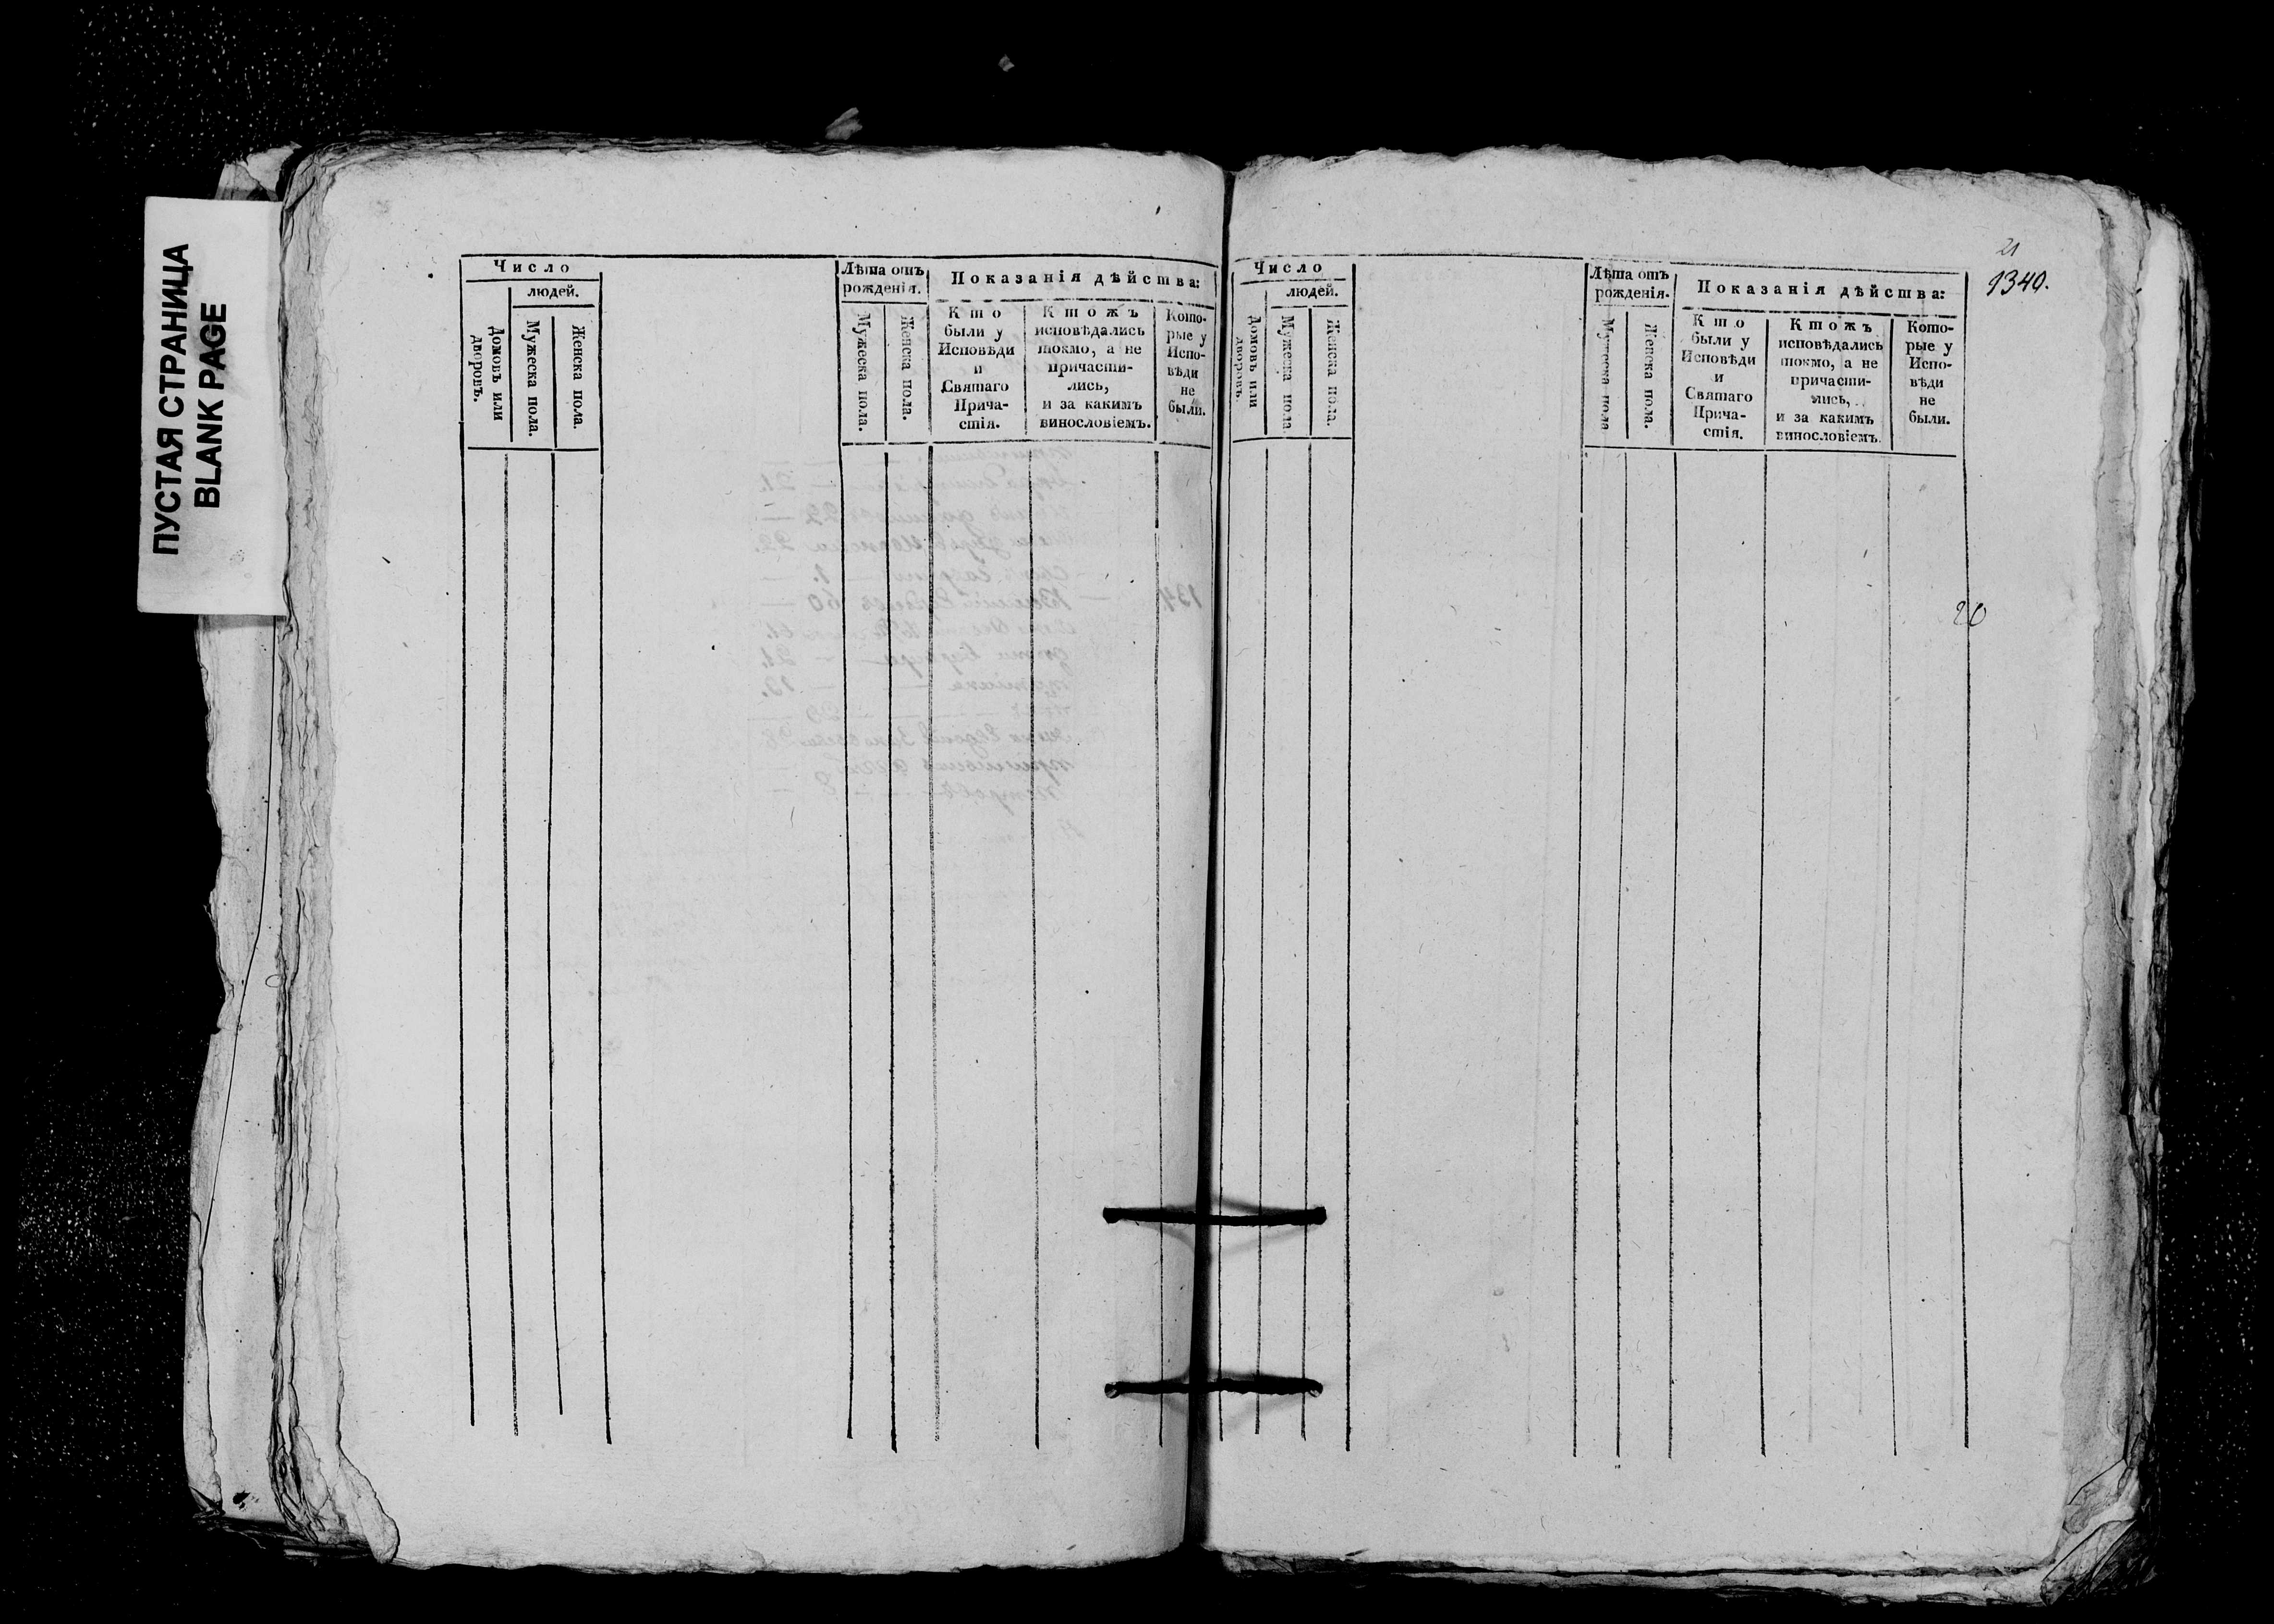 ПУСТАЯ СТРАНИЦА
BLANK PAGE
Число
людей.
Домовъ или
дворовъ.
Мужеска пола.
Женска пола.
Лѣта отъ
рожденія.
Мужеска пола.
Женска пола.
Показанія дѣйства:
Кто
были у
Исповѣди
и
Святаго
Прича-
стія.
Ктожъ
исповѣдались
токмо, а не
причасти-
лись,
и за какимъ
винословіемъ.
Кото-
рые у
Испо-
вѣди
не
были.
21
1340.
Число
людей.
Домовъ или
дворовъ.
Мужеска пола
Женска пола.
Лѣта отъ
рожденія.
Мужеска пола
Женска пола.
Показанія дѣйства:
Кто
были у
Исповѣди
и
Святаго
Прича-
стія.
Ктожъ
исповѣдались
токмо, а не
причасти-
лись,
и за какимъ
винословіемъ.
Кото-
рые у
Испо-
вѣди
не
были.
20